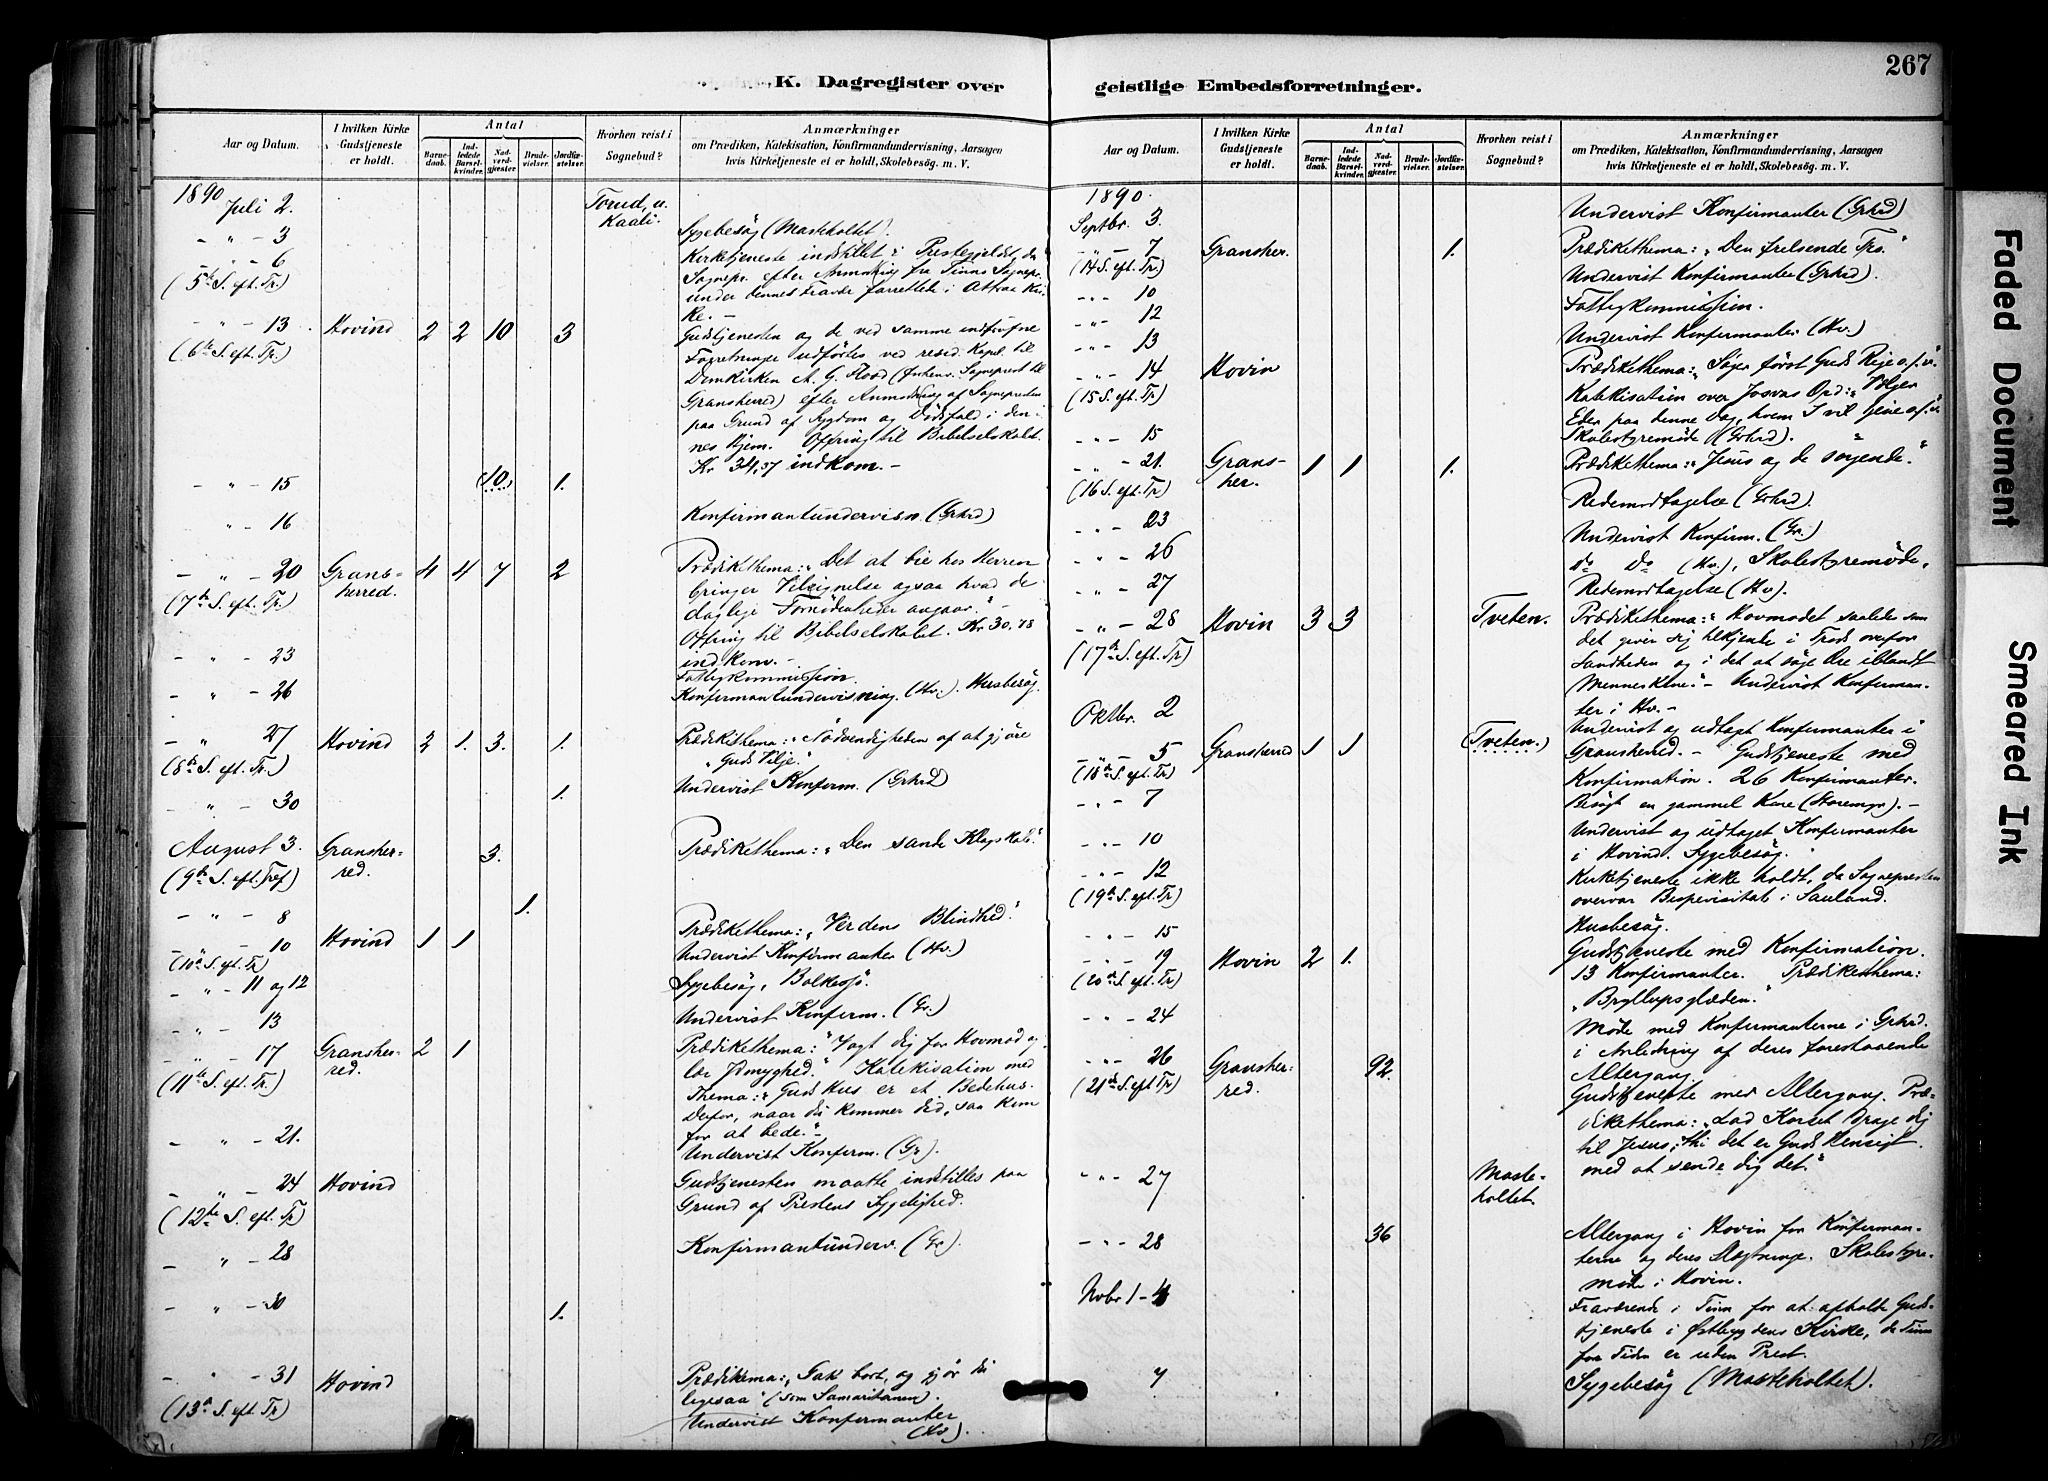 267
K. Dagregister over
geistlige Embedsforretninger.
Aar og Datum.
I hvilken Kirke Gudstjeneste er holdt.
Antal
Barnedaab.
Indledede Barselkvinder.
Nadverdgjæster.
Brudevielser.
Jordfæstelser.
Hvorhen reist i Sognebud?
Anmærkninger
om Prædiken, Katekisation, Konfirmandundervisning, Aarsagen
hvis Kirketjeneste ei er holdt, Skolebesøg. m. V.
1890
Juli 2. Torud, u. Kaali.
- " - 3 Sygebesøg (Masteholtet).
- " - 6 Kirketjeneste indstillet i Prestegjeldet, da
(5te S. eft. Tr.) Sognepr. efter Anmodning fra Tinns Sognepr.
under dennes Fravær forrettede i Attraa Kir-
ke. -
- " - 13 Hovind 2 2 10 3 Gudstjenesten og de ved samme indførte
(6te S. eft. Tr.) Forretninger udførtes ved resid. Kapl. til
Domkirken A. G. Flood (forhenv. Sogneprest til
Gransherred) efter Anmodning af Sognepresten
paa Grund af Sygdom og Dødsfald i den-
nes Hjem. Offring til Bibelselskabet.
Kr 34,37 indkom. -
- " - 15 (10) 1.
" - 16 Konfirmantundervisn. (Grhrd)
- " - 20 Grans- 4 4 7 2 Prædikethema: "Det at bie hos Herren
(7de S. eft. Tr.) herred. bringer Velsignelse ogsaa hvad de
daglige Fornødenheder angaar." -
Offring til Bibelselskabet. Kr 30,78
indkom. -
- " - 23 Fattigkommission.
- " - 26 Konfirmantundervisning. (Hv.). Husbesøg.
- " 27 Hovind 2 1. 3. 1. Prædikethema: "Nødvendigheden af at gjøre
(8de S. eft. Tr.) Guds Vilje."
Undervist Konfirm. (Grhrd)
- " - 30 1.
August 3. Gransher- 3. Prædikethema: "Den sande Klogskab."
(9de S. eft. Tref) red.
- " - 8 1.
- " - 10 Hovind 1 1 Prædikethema: "Verdens Blindhed."
(10de S. eft. Tr) Undervist Konfirmanter (Hv.)
- " - 11 og 12 Sygebesøg, Bolkesjø.
- " - 13 Undervist Konfirm. (Gr.)
- " - 17 Gransher- 2 1 Prædikethema: "Vogt dig for Hovmod og
(11te S. eft. Tr.) red. lær Ydmyghed." Katekisation med
Thema: "Guds Hus er et Bedehus.
Derfor, naar du kommer did, saa kom
for at bede." -
- " - 21. Undervist Konfirm. (Gr).
- " - 24 Hovind Gudstjenesten maatte indstilles paa
(12te S. eft. Tr) Grund af Prestens Sygelighed.
- " - 28 Konfirmantunderv. (Gr).
- " - 30 1.
- " - 31 Hovind Prædikethema: "Gak bort, og gjør du
(13de S. eft. Tr) ligesaa" (som Samaritanen).
Undervist Konfirmanter
(Hv).
Aar og Datum.
I hvilken Kirke Gudstjeneste er holdt.
Antal
Barnedaab.
Indledede Barselkvinder.
Nadverdgjæster.
Brudevielser.
Jordfæstelser.
Hvorhen reist i Sognebud?
Anmærkninger
om Prædiken, Katekisation, Konfirmandundervisning, Aarsagen
hvis Kirketjeneste ei er holdt, Skolebesøg. m. V.
1890.
Septbr. 3. Undervist Konfirmanter (Grhrd)
- " - 7 Gransher. 1. Prædikethema: "Den frelsende Tro."
(14 S. eft. Tr.)
- " - 10 Undervist Konfirmanter (Grhrd).
- " - 12 Fattigkommission.
- " - 13 Undervist Konfirmanter (Hv.)
- " - 14 Hovin Prædikethema: "Søger først Guds Rige o.s.v."
(15 S. eft. Tr) Katekisation over Josvas Ord: "Vælger
Eder paa denne Dag, hvem I vil tjene o.s.v."
- " - 15 Skolestyremøde (Grhrd).
- " - 21. Grans- 1 1 1. Prædikethema: "Jesus og de sørgende."
(16 S. eft. Tr) her.
Redemodtagelse (Grhrd).
- " - 23 Undervist Konfirm. (Gr.)
" - 26 do Do (Hv.), Skolestyremøde,
- " - 27 Redemodtagelse (Hv).
- " - 28 Hovin 3 3 Tveten. Prædikethema: "Hovmodet saaledes som
(17de S. eft. Tr) det giver sig tilkjende i Trods overfor
Sandheden og i det at søge Ære iblandt
Menneskene." - Undervist Konfirman-
ter i Hv. -
Oktbr. 2 Undervist og udtaget Konfirmanter i
- " - 5 Gransherred 1 1 (Tveten.) Gransherred. - Gudstjeneste med
(18de S. eft. Tr) Konfirmation. 26 Konfirmanter.
- " - 7 Besøgt en gammel Kone (Storemyr). -
- " - 10 Undervist og udtaget Konfirmanter
i Hovind. Sygebesøg.
- " - 12 Kirketjeneste ikke holdt, da Sognepresten
(19de S. eft. Tr) overvar Bispevisitats i Sauland.
- " - 15 Husbesøg.
- " - 19 Hovin 2 1. Gudstjeneste med Konfirmation.
(20de S. eft. Tr) 13 Konfirmanter. Prædikethema:
"Bryllupsglæden."
- " - 24 Møde med Konfirmanterne i Grhrd.
i Anledning af deres forestaaende
Altergang.
- " - 26 Gransher- 92. Gudstjeneste med Altergang. Præ-
(21de S. eft Tr) red. dikethema: "Lad Korset drage dig
til Jesus; thi det er Guds Hensigt
med at sende dig det."
- " - 27 Maste-
holtet.
- " - 28 36 Altergang i Hovin for Konfirman-
terne og deres Slægtninge. Skolestyre-
møde i Hovin.
Nvbr 1 - 4 Fraværende i Tinn for at afholde Guds-
tjeneste i Østbygdens Kirke, da Tinn
for Tiden er uden Prest.
" 7 Sygebesøg (Masteholtet).
Faded Document
Smeared Ink